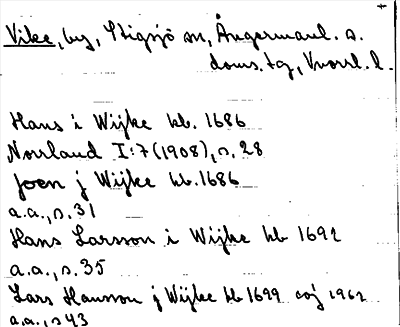 Vike, by, Stigsjö sn, Ångermanl. s.
doms. tg, Vnorrl. l.
Hans i Wijke kb. 1686
Norrland I:7 (1908), s. 28
Joen j Wijke kb. 1686
a.a., s. 31
Hans Larsson i Wijke kb 1692
a.a., s. 35
Lars Hansson j Wijke kb 1699
a.a., s 43